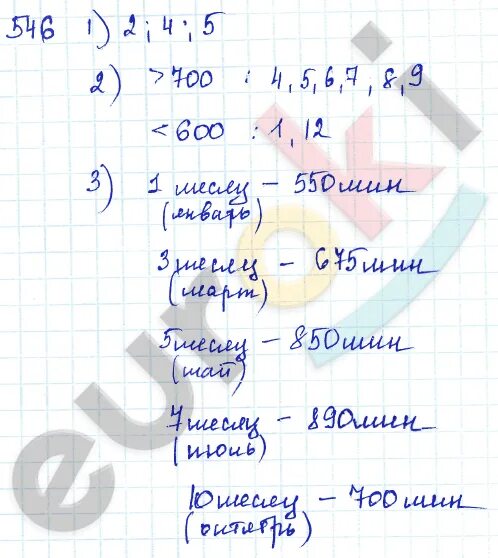 546 1) 2; 4; 5
2) >700 : 4, 5, 6, 7, 8, 9
<600 : 1, 12
3) 1 месяц – 550 мин
(январь)
3 месяц – 675 мин
(март)
5 месяц – 850 мин
(май)
7 месяц – 890 мин
(июль)
10 месяц – 700 мин
(октябрь)
euroki